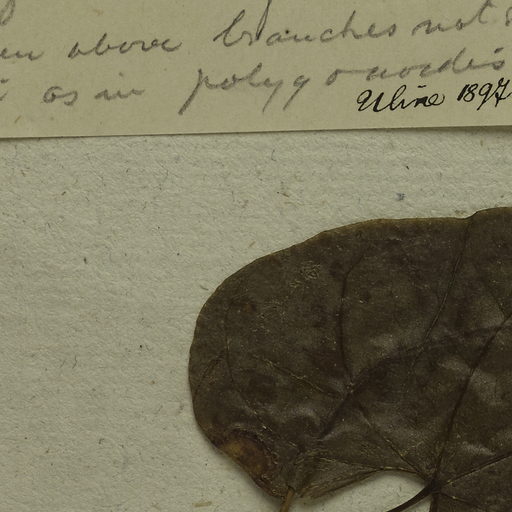 above branches not
as in polygonoides
Uline 1897